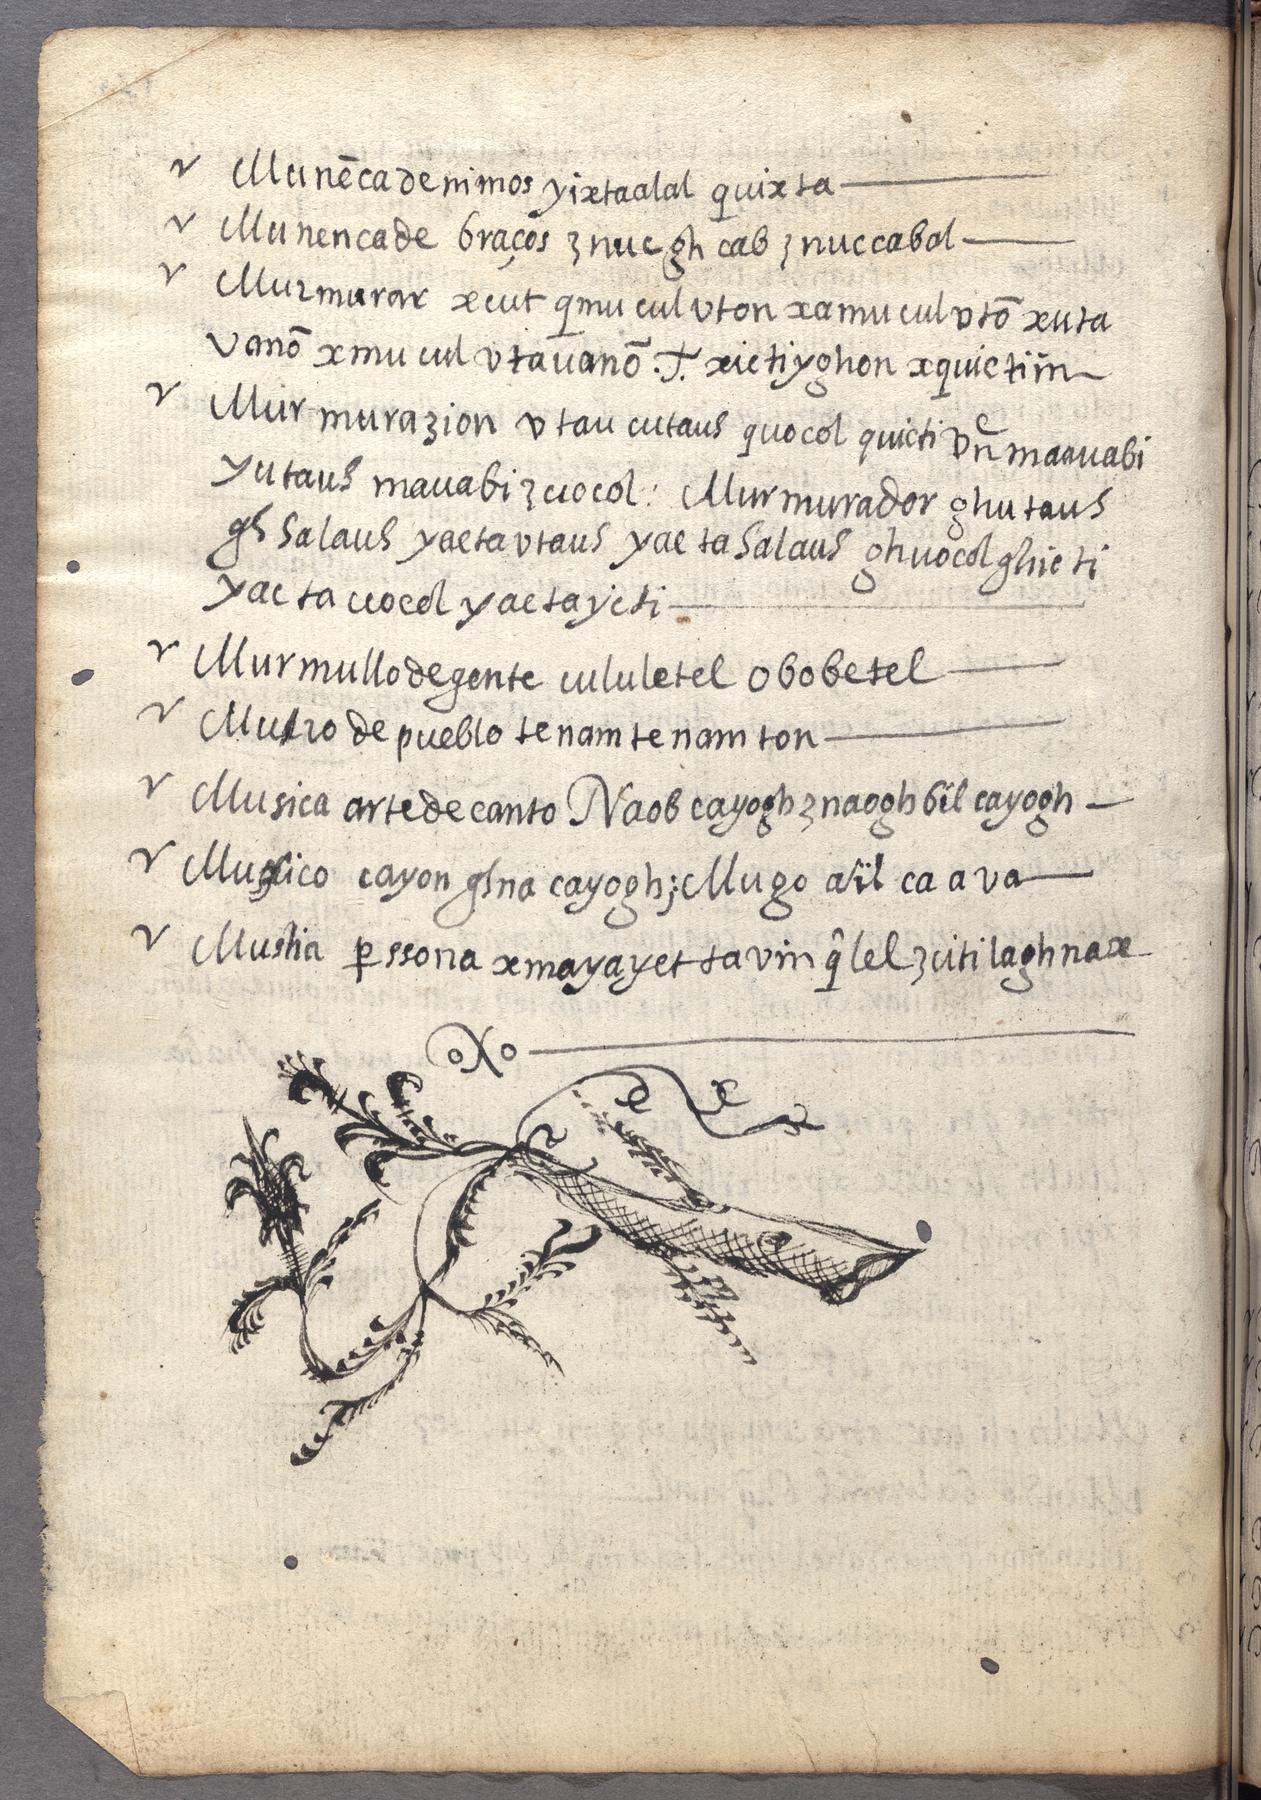 Munēca de ninos yixtaalal quixta
Munenca de braços ꜫnuc gh cab ꜫnuccabal
Murmurar xcut qmu cul vton xamucul vtō xuta
vanō xmu cul vtauanō .T. xictiyghon xquictiin
Murmuraꜫion vtau cutaus quocol quicti vn̄ maauabi
yutaus mauabiꜫcuocol: Murmurador ghutaus
gh Salaus yaeta vtaus yaeta Salaus ghuocol ghicti
yaeta cuocol yaetayicti
Murmullo de gente culul etel obobetel
Muro de pueblo tenam tenamton
Musica arte de canto Naob cayogh ꜫnaoghbil cayogh
Musico cayon ghna cayogh; Mugo aïl ca a va
Mustia pssona xmayayet tavin q̂lel ꜫcitilaghnax
oXo